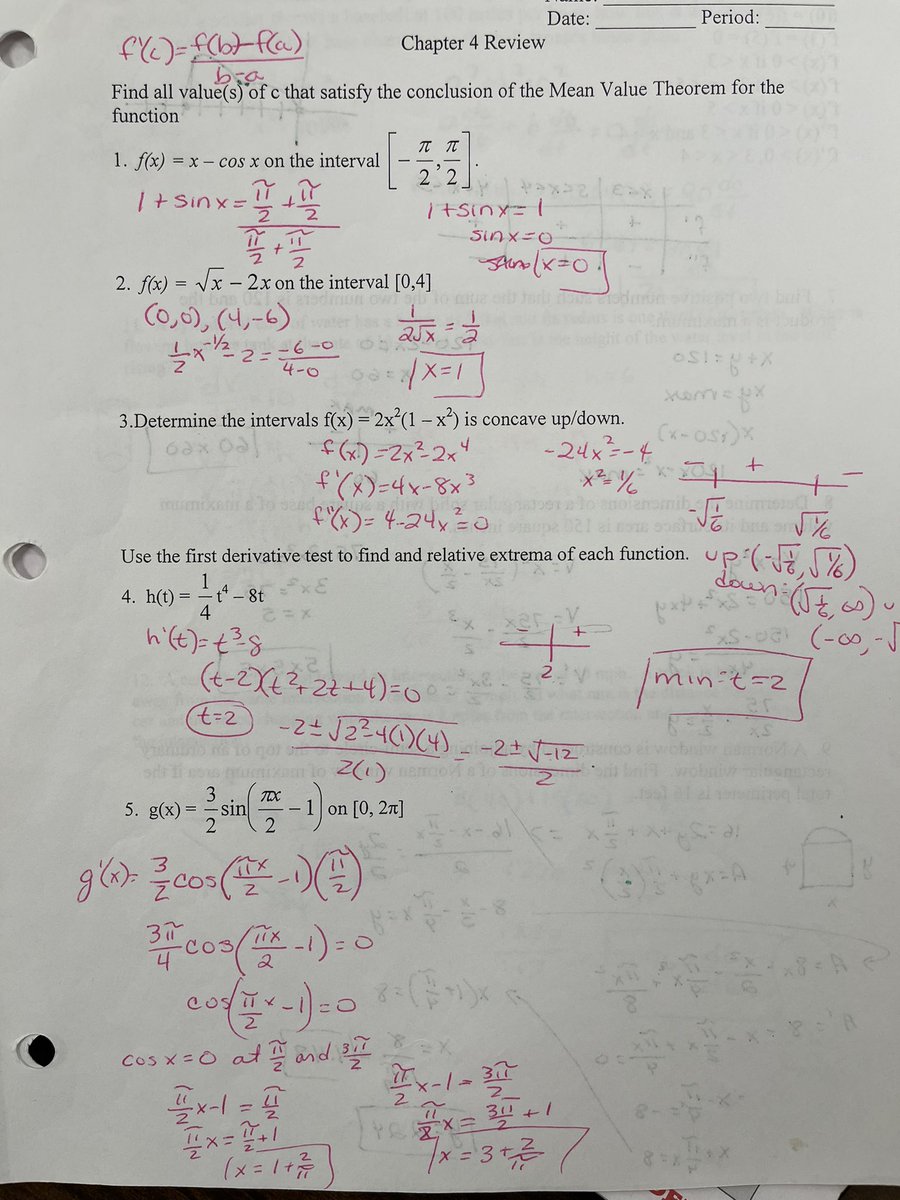 Date: ________ Period: ________
Chapter 4 Review
f'(c) = f(b)-f(a) / b-a
Find all value(s) of c that satisfy the conclusion of the Mean Value Theorem for the
function
1. f(x) = x – cos x on the interval [-π/2, π/2].
1 + sin x = (π/2 + π/2) / (π/2 + π/2)
1 + sin x = 1
sin x = 0
x = 0
2. f(x) = √x – 2x on the interval [0,4]
(0,0), (4,-6)
1/2 x^(-1/2) - 2 = (-6-0)/(4-0)
1/(2√x) = 1/2
x = 1
3.Determine the intervals f(x) = 2x²(1 – x²) is concave up/down.
f(x) = 2x² - 2x⁴
f'(x) = 4x - 8x³
f''(x) = 4 - 24x² = 0
-24x² = -4
x² = 1/6
- + -
-√(1/6) √(1/6)
up: (-√(1/6), √(1/6))
down: (√(1/6), ∞) ∪
(-∞, -√
Use the first derivative test to find and relative extrema of each function.
4. h(t) = 1/4 t⁴ – 8t
h'(t) = t³ - 8
(t-2)(t²+2t+4) = 0
t = 2
(-2 ± √(2²-4(1)(4))) / 2(1) = (-2 ± √-12) / 2
- +
2
min: t = 2
5. g(x) = 3/2 sin(πx/2 – 1) on [0, 2π]
g'(x) = 3/2 cos(πx/2 - 1)(π/2)
3π/4 cos(πx/2 - 1) = 0
cos(π/2 x - 1) = 0
cos x = 0 at π/2 and 3π/2
π/2 x - 1 = π/2
π/2 x = π/2 + 1
x = 1 + 2/π
π/2 x - 1 = 3π/2
π/2 x = 3π/2 + 1
x = 3 + 2/π